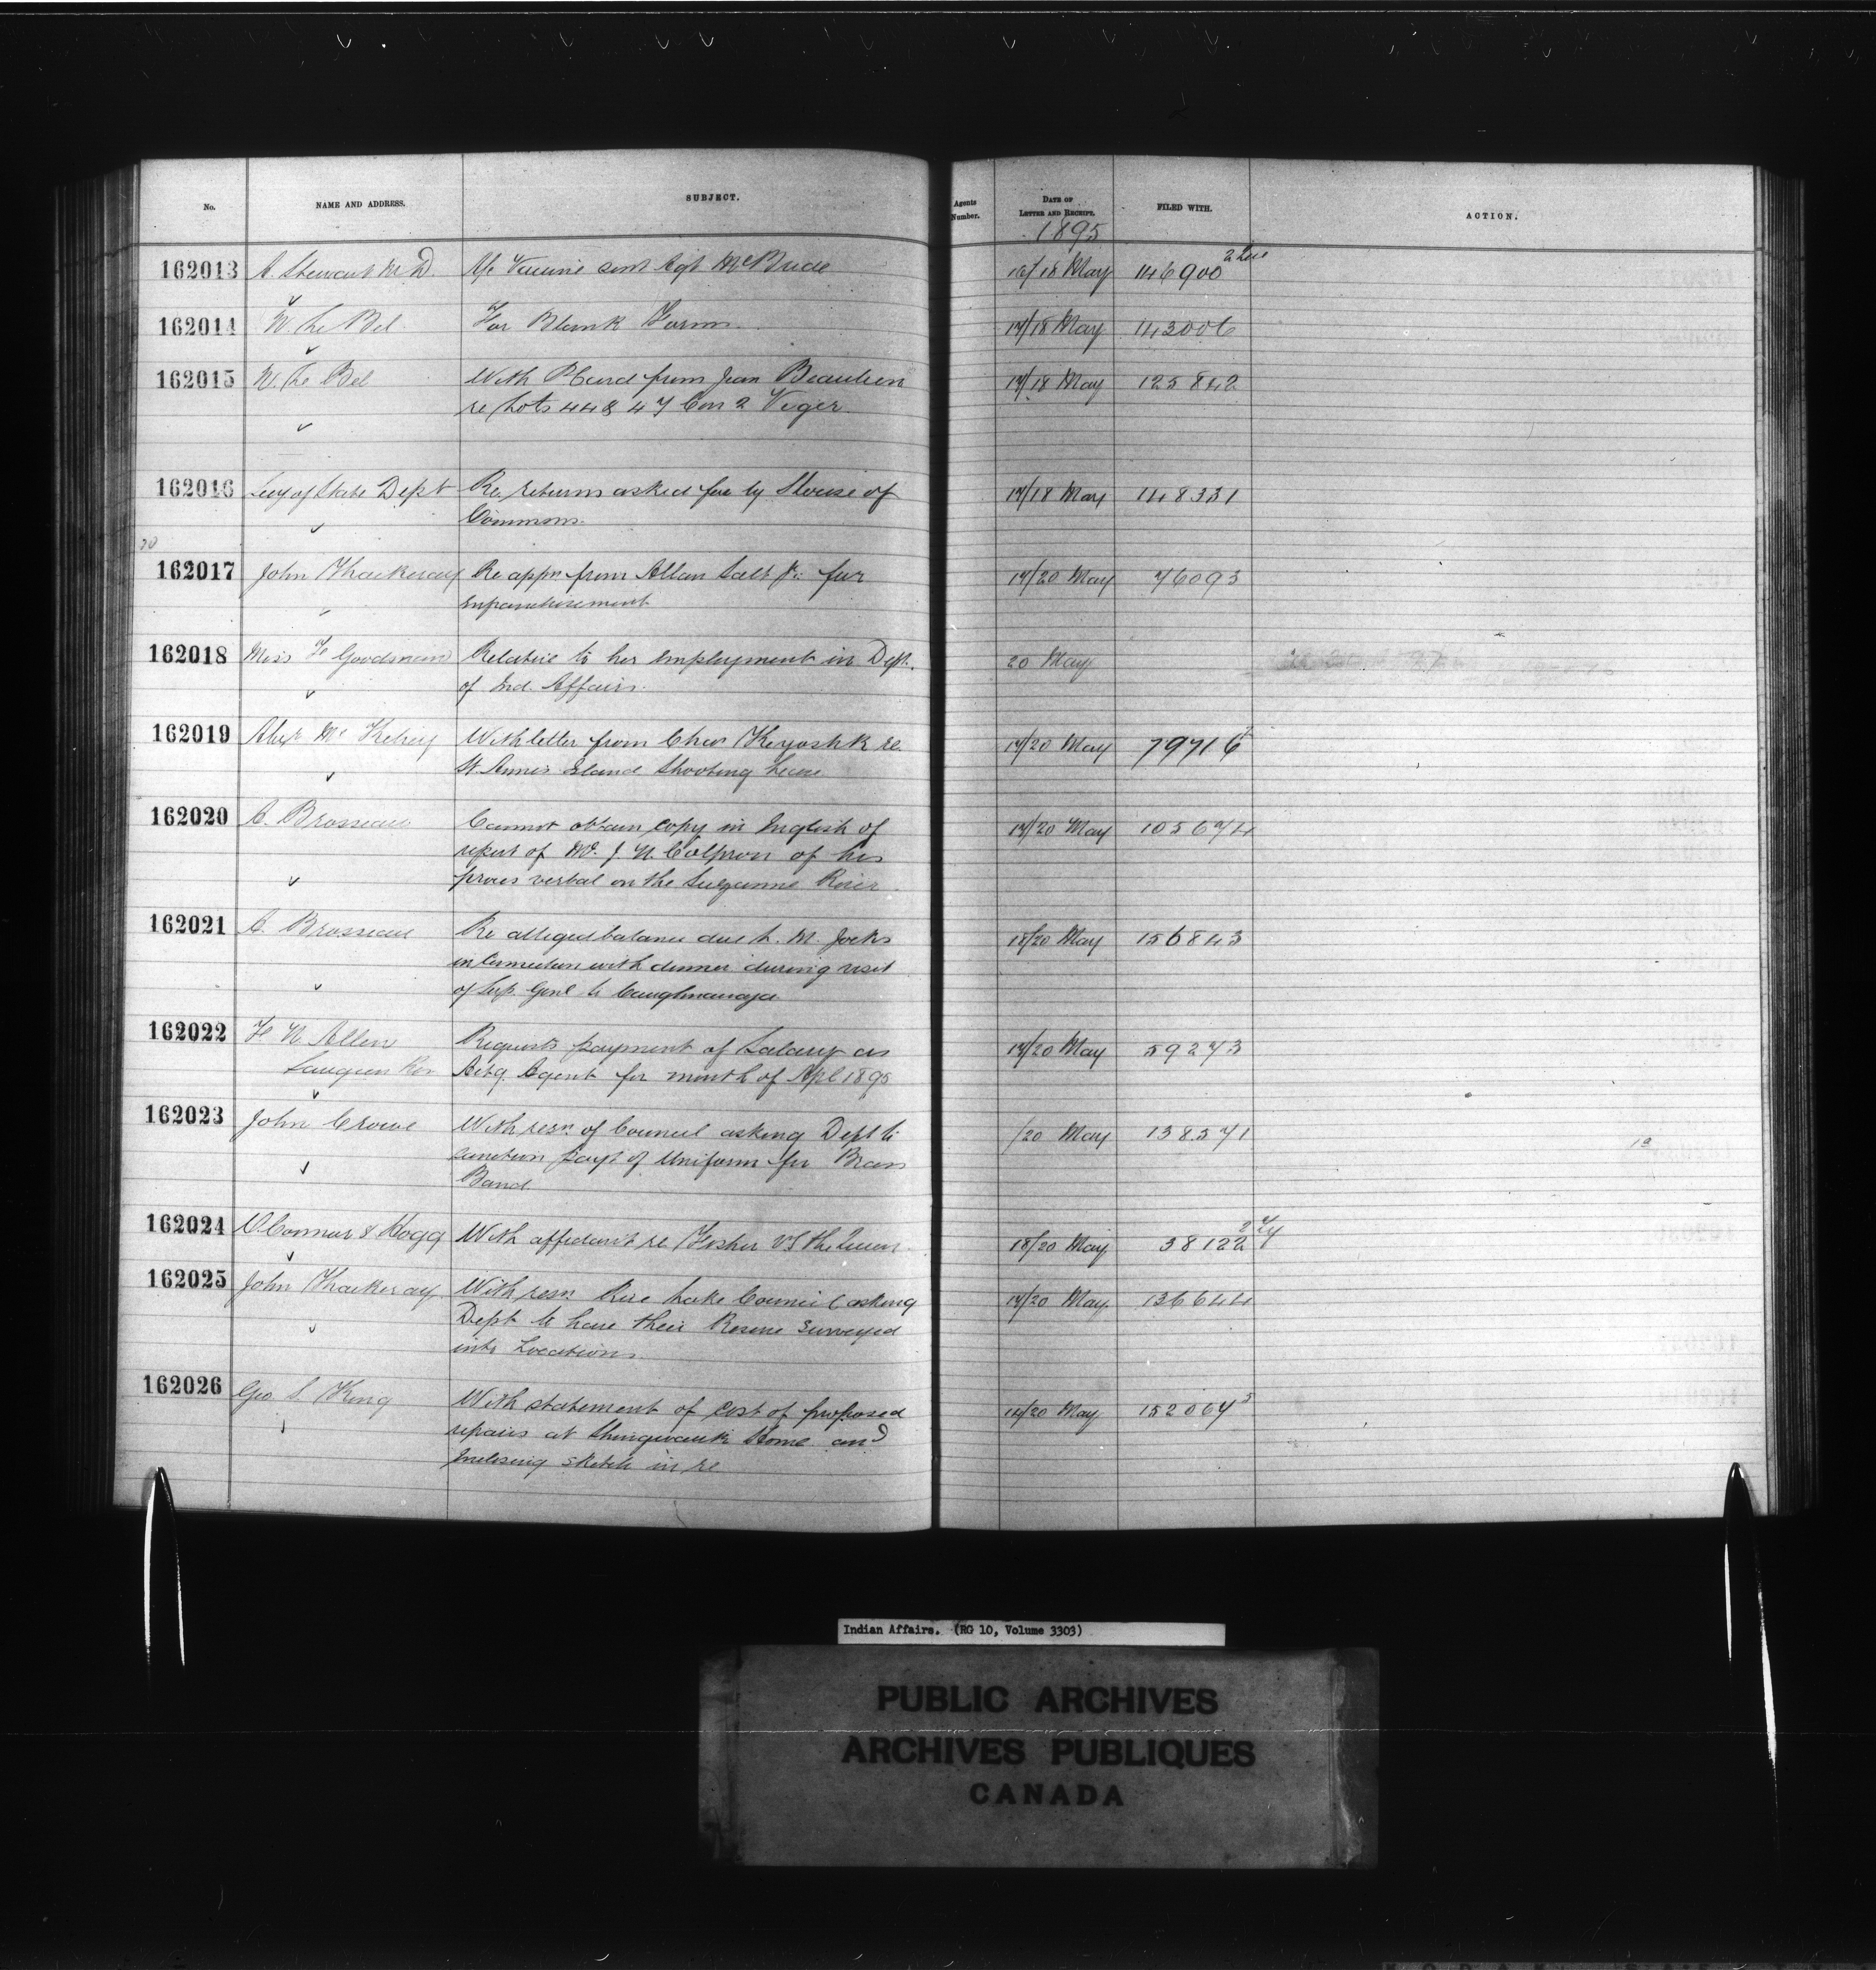 No. NAME AND ADDRESS. SUBJECT. Agents Number. DATE OF LETTER AND RECEIPT. FILED WITH. ACTION.
1895
162013 A. Stewart M.D. Vaccine sent Agt McBride 16/18 May 146900
162014 W. Le Bel For Blank Forms. 17/18 May 143006
162015 W. Le Bel With P. Card from Jean Beaulieu 17/18 May 125842
re Lots 44 & 47 Con 2 Viger
162016 Secy of State Dept Re. returns asked for by House of 17/18 May 148331
Commons.
162017 John Thackeray Re appn from Allan Salt Jr. for 17/20 May 76093
enfranchisement
162018 Miss Goodman Relative to her employment in Dept. 20 May
of Ind. Affairs.
162019 Alex McKelvey With letter from Chas Keyoshk re. 17/20 May 79716
St. Anne's Island Shooting Lease
162020 A. Brosseau Cannot obtain copy in English of 17/20 May 105674
report of Mr. J. N. of his
proces verbal on the Suzanne River
162021 A. Brosseau Re alleged balance due L. M. Jocks 18/20 May 156843
in Connection with dinner during visit
of Sup. Genl to Caughnawaga
162022 N Allen Requests payment of Salary as 17/20 May 59273
Saugeen Res Actg. Agent for month of Apl 1895
162023 John Crowe With resn. of Council asking Dept to /20 May 138371
sanction payt of Uniform for Brass
Band.
162024 O'Connor & Hogg With affidavit re Fisher vs the Queen. 18/20 May 38122
162025 John Thackeray With resn Rice Lake Council asking 17/20 May. 136644
Dept to have their Reserve Surveyed
into Locations
162026 Geo. L. King With statement of cost of proposed 14/20 May 152064
repairs at Shingwauk Home and
Inclosing sketch in re
Indian Affairs. (RG 10, Volume 3303)
PUBLIC ARCHIVES
ARCHIVES PUBLIQUES
CANADA